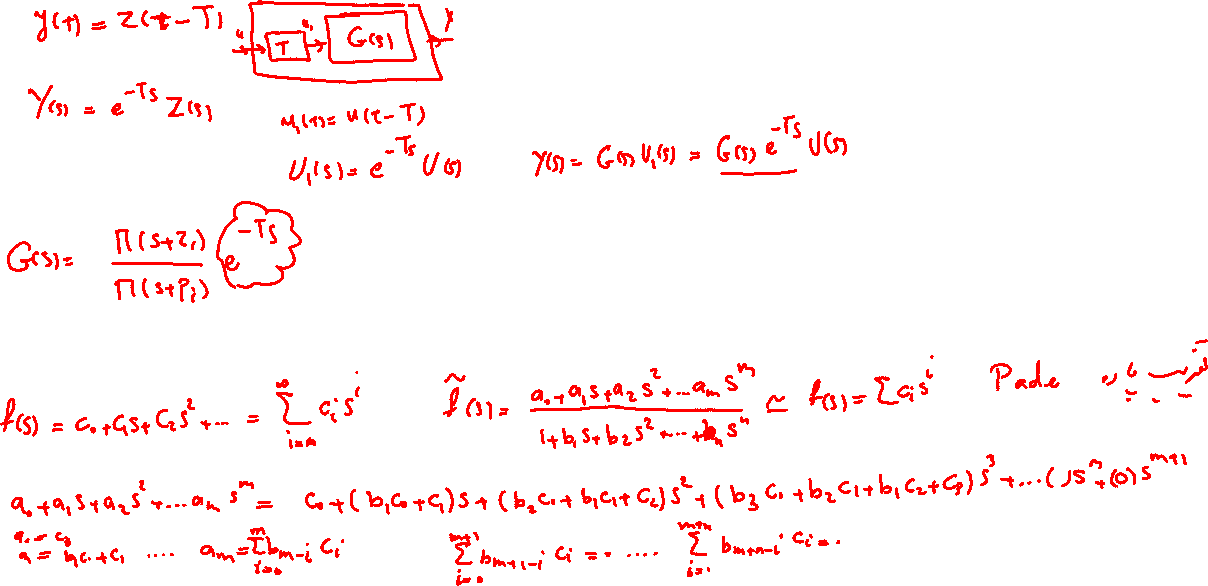 y(t) = z(t-T)
u T u₁ G(s) y
Y(s) = e^{-Ts} Z(s)
u₁(t) = u(t-T)
U₁(s) = e^{-Ts} U(s)
Y(s) = G(s) U₁(s) = G(s) e^{-Ts} U(s)
G(s) = Π(s+z_i) / Π(s+p_i) e^{-Ts}
f(s) = c₀ + c₁s + c₂s² + ... = Σ_{i=0}^{∞} c_i s^i
f̃(s) = (a₀ + a₁s + a₂s² + ... a_m s^m) / (1 + b₁s + b₂s² + ... + b_n s^n) ≃ f(s) = Σ c_i s^i
Pade تقریب پاده
a₀ + a₁s + a₂s² + ... a_m s^m = c₀ + (b₁c₀ + c₁)s + (b₂c₀ + b₁c₁ + c₂)s² + (b₃c₀ + b₂c₁ + b₁c₂ + c₃)s³ + ... ( )s^m + (0)s^{m+1}
a₀ = c₀
a₁ = b₁c₀ + c₁ .... a_m = Σ_{i=0}^{m} b_{m-i} c_i
Σ_{i=0}^{m+1} b_{m+1-i} c_i = 0 .... Σ_{i=0}^{m+n} b_{m+n-i} c_i = 0